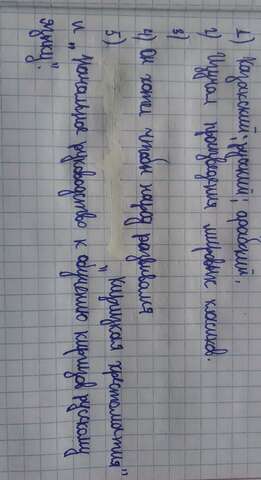 1) Казахский; русский; арабский;
2) Изучал произведения мировых классиков.
3)
4) Он хотел чтобы народ развивался
5) "Киргизская хрестоматия"
и "Начальное руководство к обучению киргизов русскому
языку".